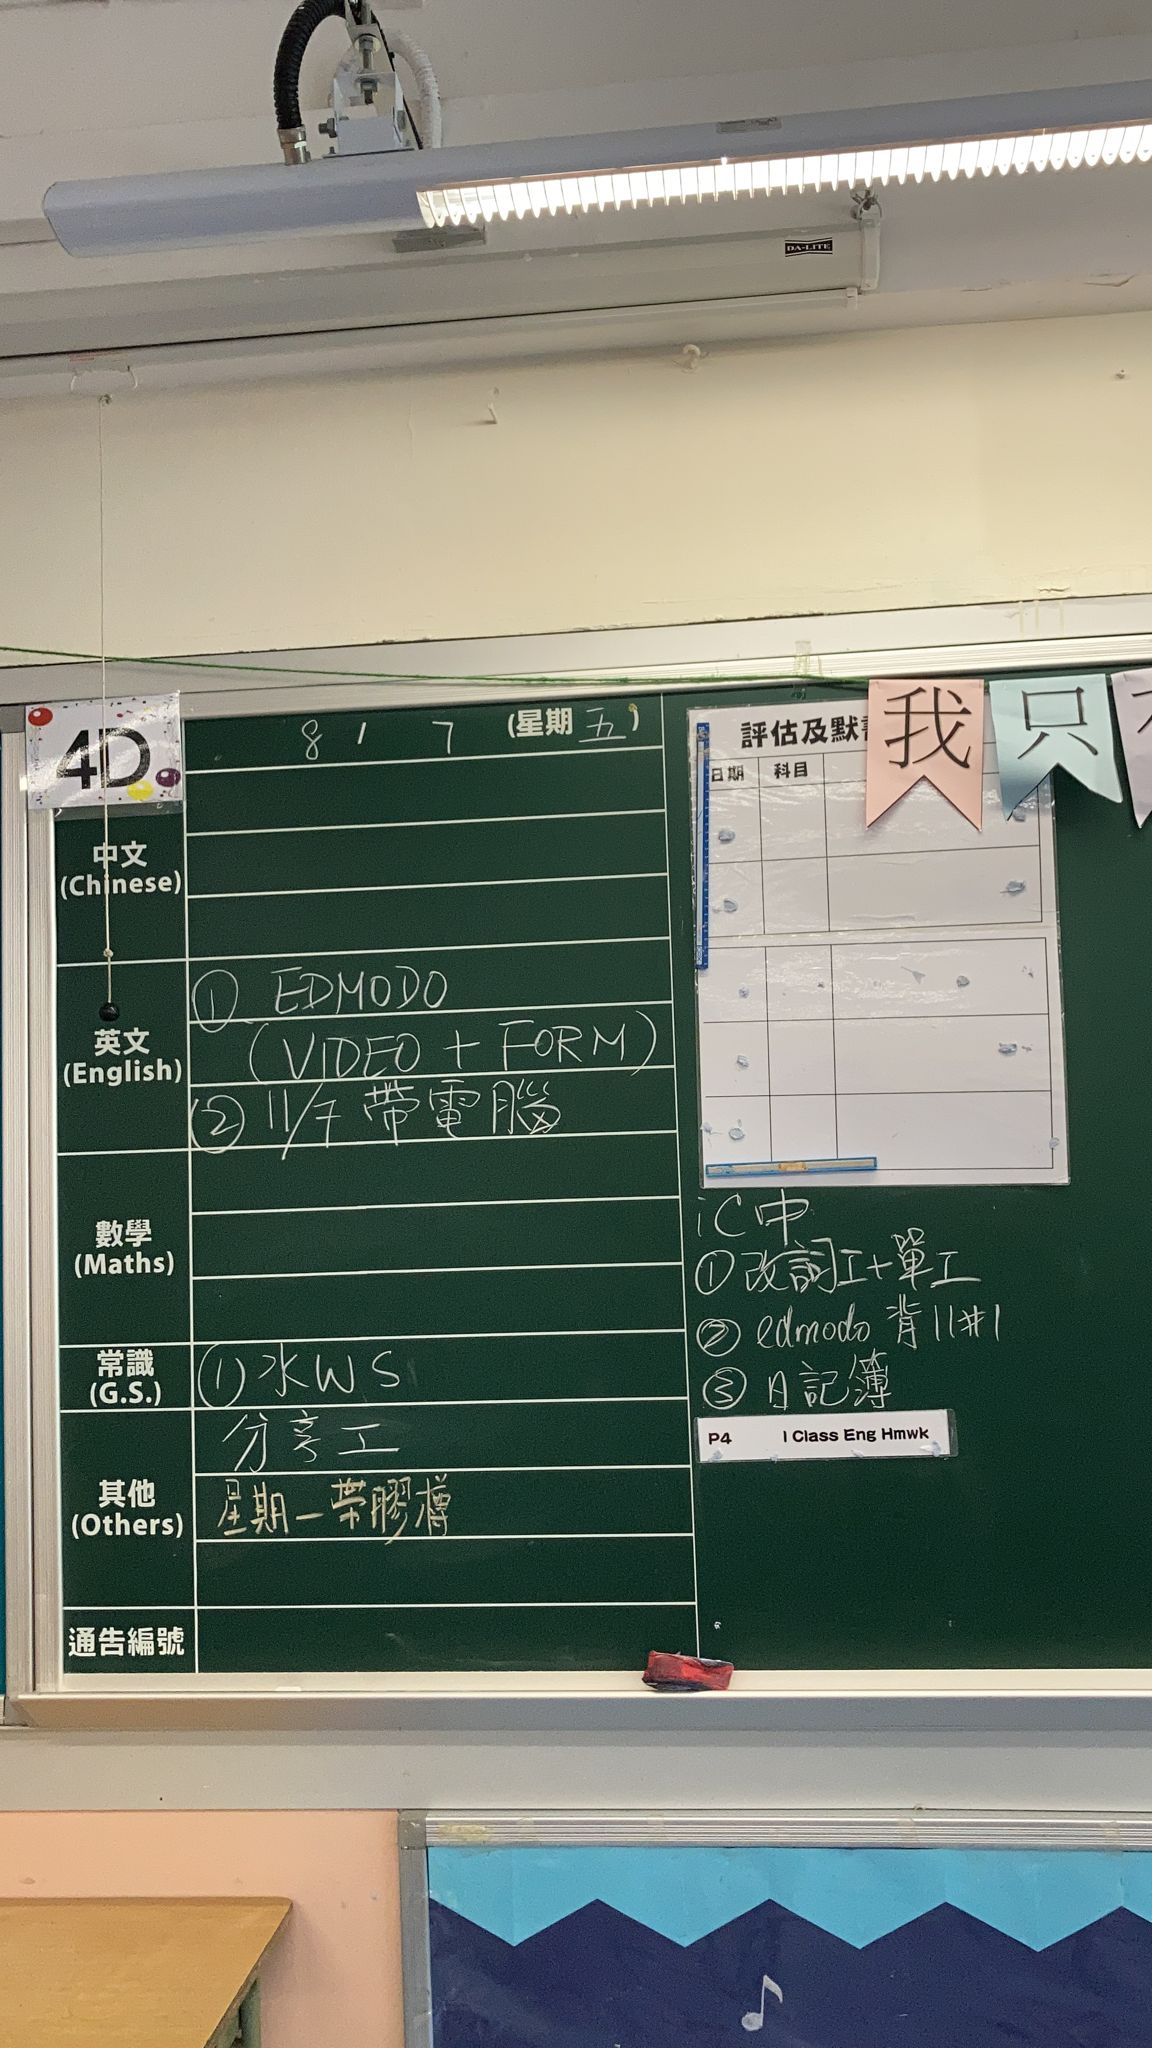 DA-LITE
我 只
4D
8 / 7 (星期 五)
評估及默
日期 科目
中文
(Chinese)
英文
(English)
① EDMODO
(VIDEO + FORM)
② 11/7 帶電腦
數學
(Maths)
常識
(G.S.)
① 水WS
其他
(Others)
分享工
星期一帶膠樽
通告編號
iC中
① 改詞工+單工
② edmodo 背11#1
③ 日記簿
P4 I Class Eng Hmwk